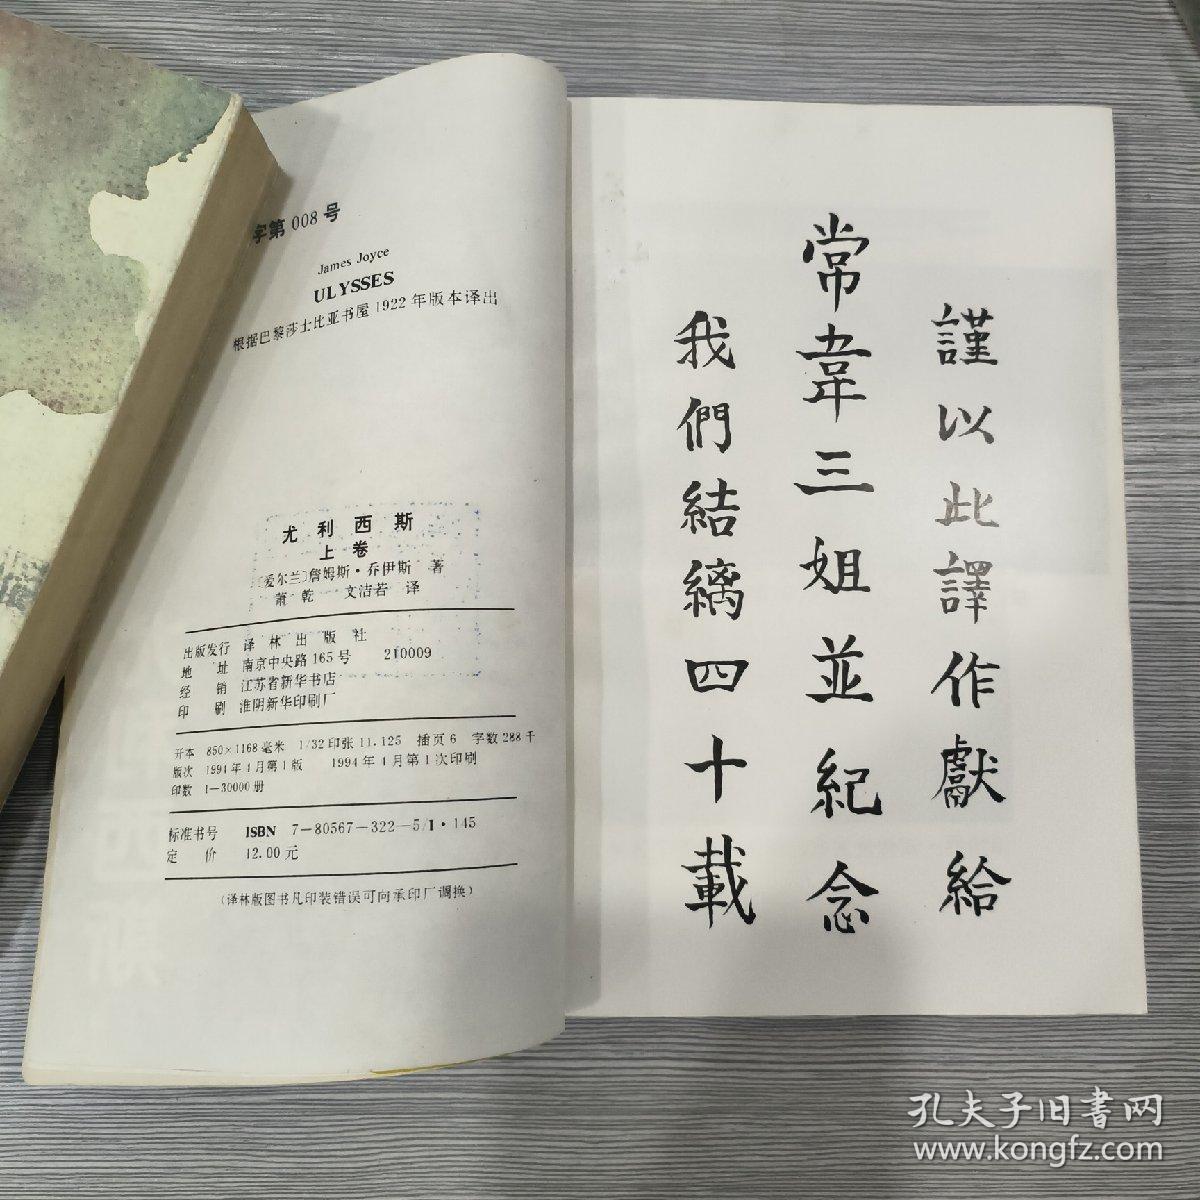 字第008号
James Joyce
ULYSSES
根据巴黎莎士比亚书屋1922年版本译出
尤利西斯
上卷
〔爱尔兰〕詹姆斯·乔伊斯 著
萧乾 文洁若 译
出版发行 译林出版社
地 址 南京中央路165号 210009
经 销 江苏省新华书店
印 刷 淮阴新华印刷厂
开本 850×1168毫米 1/32 印张 11.125 插页 6 字数 288千
版次 1994年4月第1版 1994年4月第1次印刷
印数 1—30000册
标准书号 ISBN 7—80567—322—5/I·145
定 价 12.00元
(译林版图书凡印装错误可向承印厂调换)
謹以此譯作獻給
常韋三姐並紀念
我們結縭四十載
孔夫子旧书网
www.kongfz.com